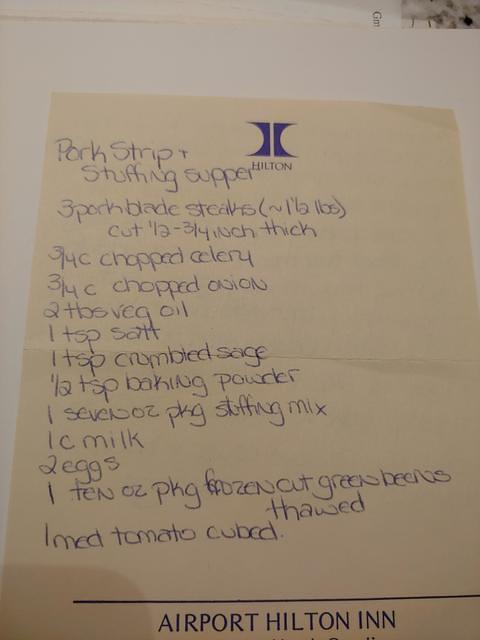 HILTON
Pork Strip +
Stuffing supper
3 pork blade steaks (~1 1/2 lbs)
cut 1/2 - 3/4 inch thick
3/4 c chopped celery
3/4 c chopped onion
2 tbs veg oil
1 tsp salt
1 tsp crumbled sage
1/2 tsp baking powder
1 seven oz pkg stuffing mix
1 c milk
2 eggs
1 ten oz pkg frozen cut green beens
thawed
1 med tomato cubed.
AIRPORT HILTON INN